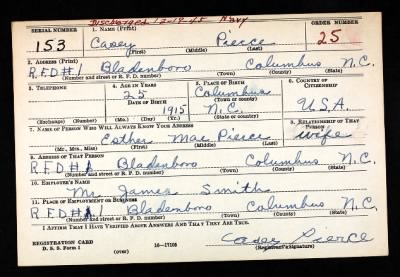 Discharged 12-19-45 Navy
SERIAL NUMBER 1. NAME (Print) ORDER NUMBER
153 Casey Pierce 25
(First) (Middle) (Last)
2. ADDRESS (Print)
R.F.D #1 Bladenboro Columbus N.C.
(Number and street or R. F. D. number) (Town) (County) (State)
3. TELEPHONE 4. AGE IN YEARS 5. PLACE OF BIRTH 6. COUNTRY OF CITIZENSHIP
25 Columbus
DATE OF BIRTH (Town or county)
1915 N.C. U.S.A.
(Exchange) (Number) (Mo.) (Day) (Yr.) (State or country)
7. NAME OF PERSON WHO WILL ALWAYS KNOW YOUR ADDRESS 8. RELATIONSHIP OF THAT PERSON
Esther Mae Pierce wife
(Mr., Mrs., Miss) (First) (Middle) (Last)
9. ADDRESS OF THAT PERSON
R.F.D #1 Bladenboro Columbus N.C.
(Number and street or R. F. D. number) (Town) (County) (State)
10. EMPLOYER'S NAME
Mr. James Smith
11. PLACE OF EMPLOYMENT OR BUSINESS
R.F.D #1 Bladenboro Columbus N.C.
(Number and street or R. F. D. number) (Town) (County) (State)
I AFFIRM THAT I HAVE VERIFIED ABOVE ANSWERS AND THAT THEY ARE TRUE.
REGISTRATION CARD Casey Pierce
D. S. S. Form 1 (over) 16—17105 (Registrant's signature)